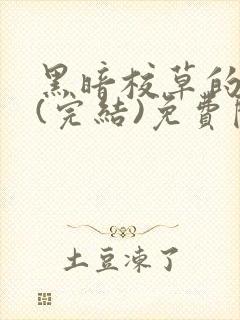 黑暗校草的
(完結)免費
土豆凍了